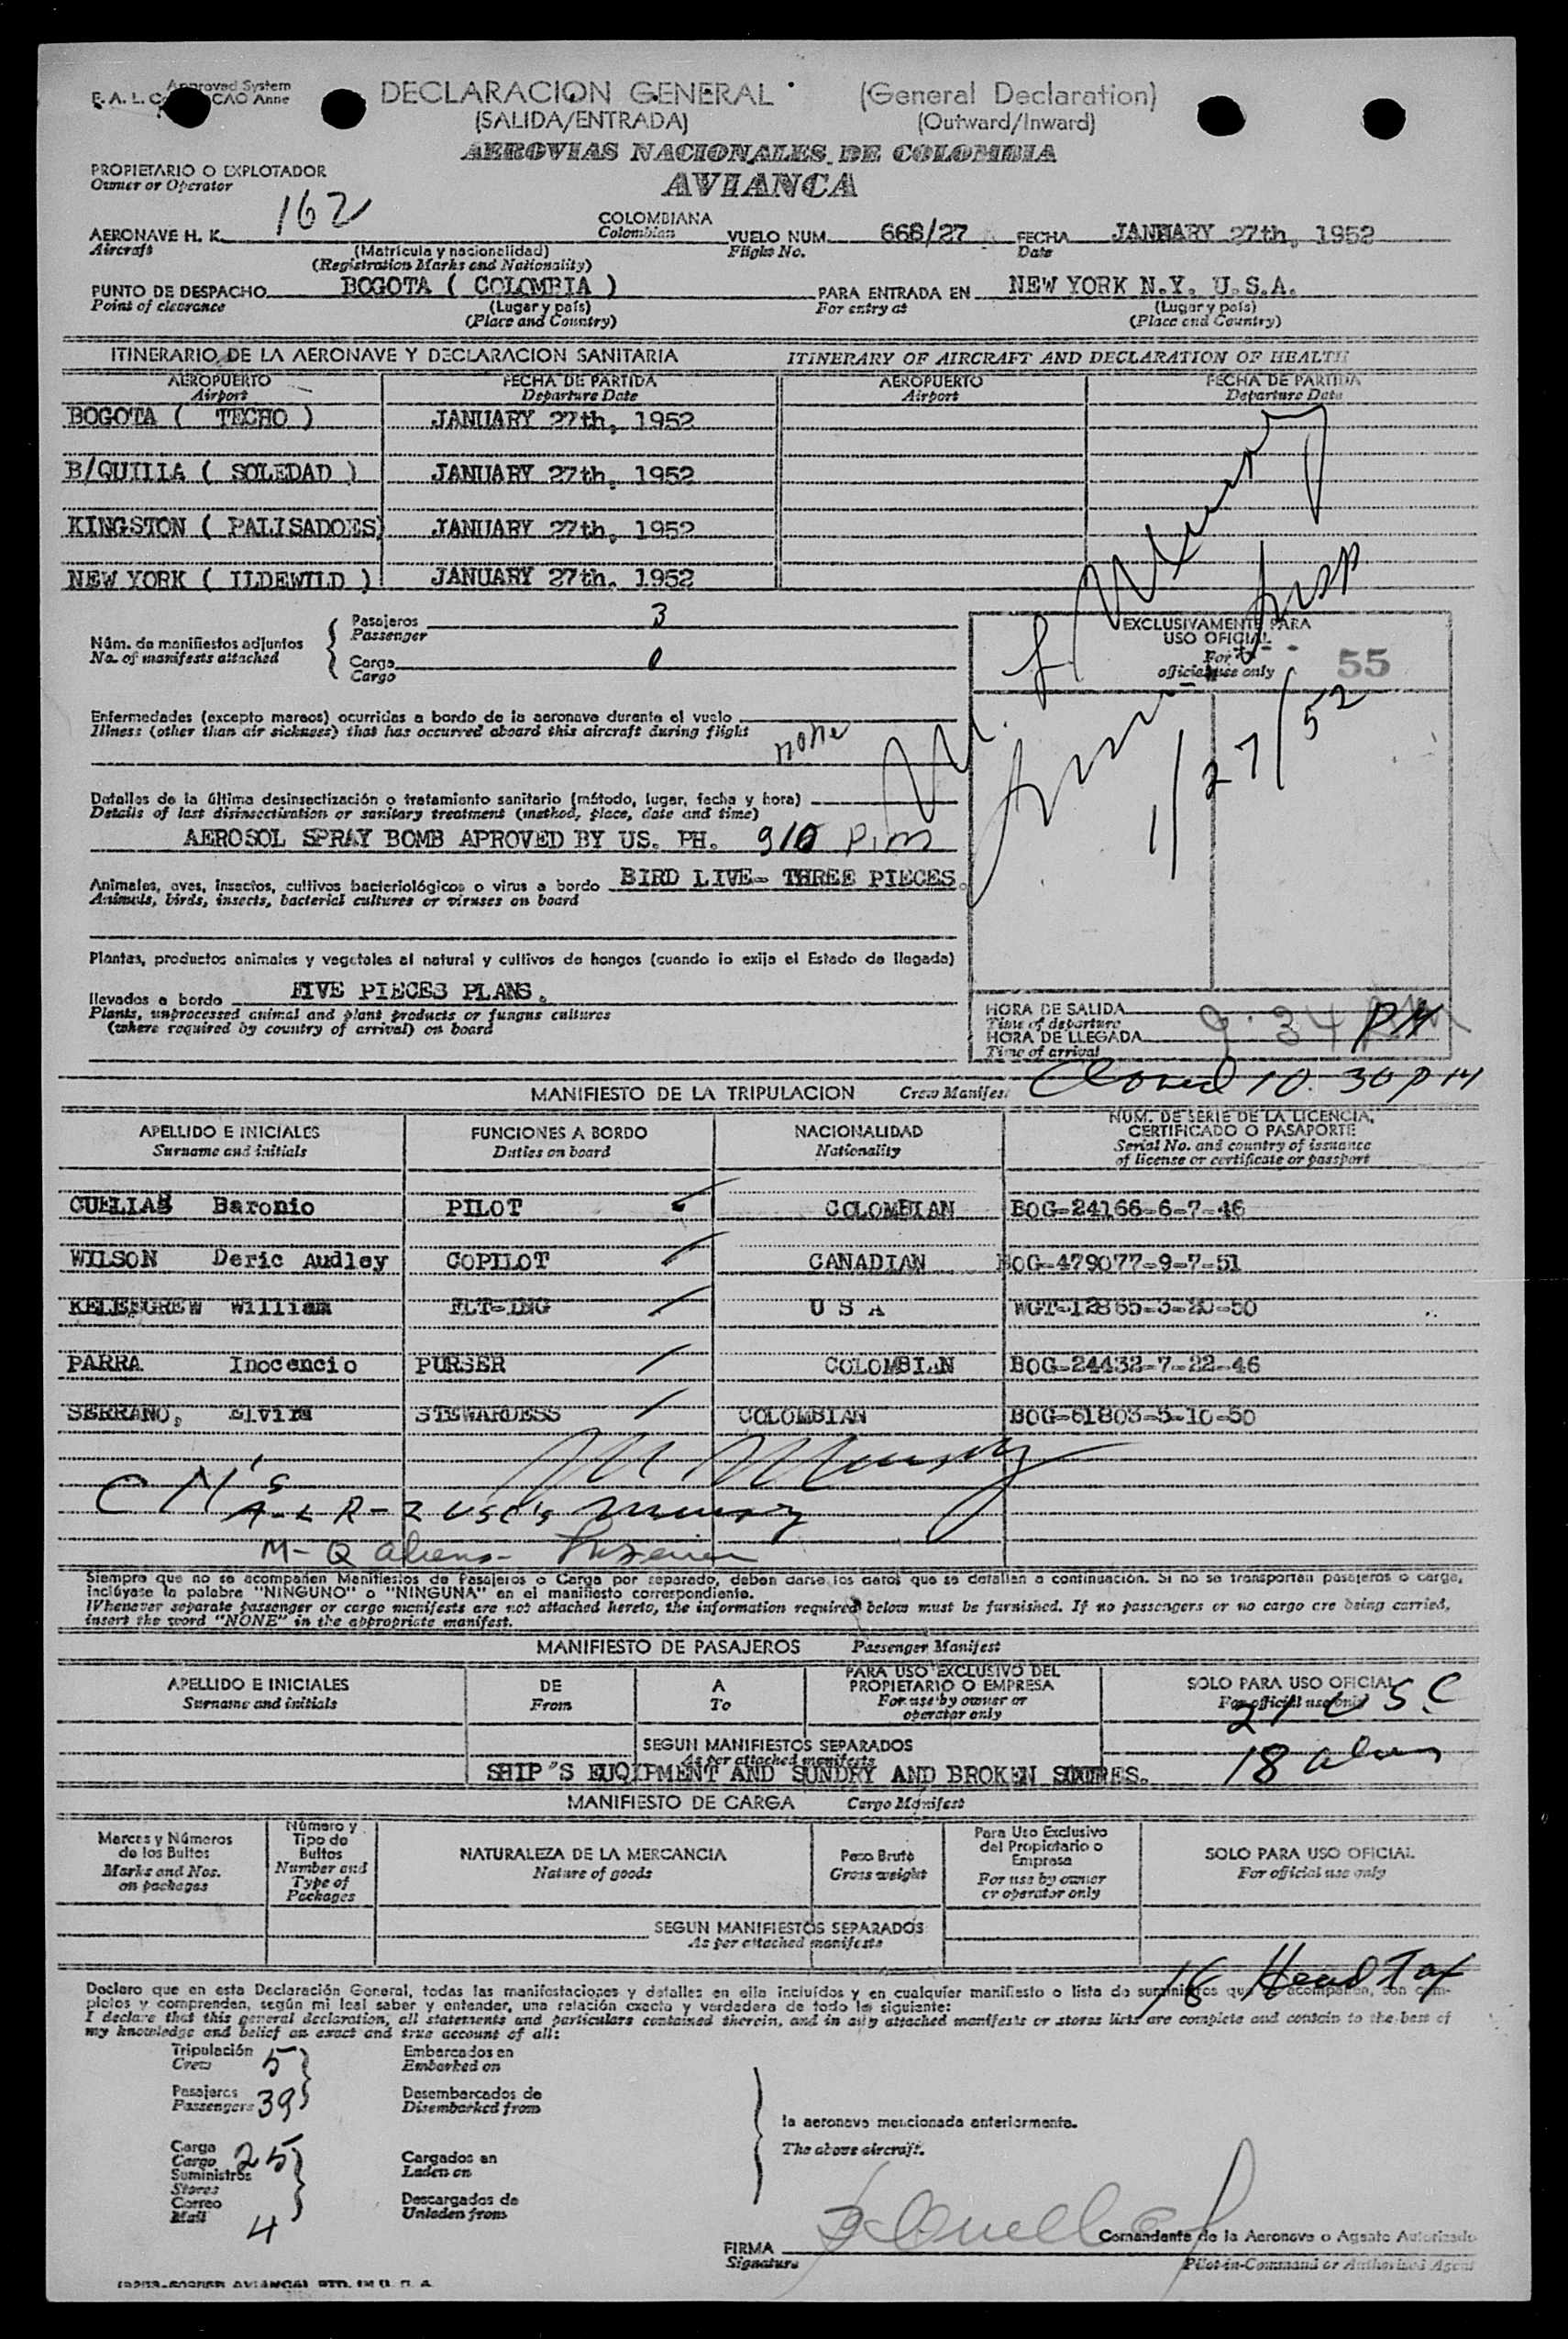 Approved System
E. A. L. C CAO Anne
DECLARACION GENERAL (General Declaration)
(SALIDA/ENTRADA) (Outward/Inward)
AEROVIAS NACIONALES DE COLOMBIA
AVIANCA
PROPIETARIO O EXPLOTADOR
Owner or Operator
AERONAVE H. K. 162 COLOMBIANA VUELO NUM. 668/27 FECHA JANUARY 27th, 1952
Aircraft Colombian Flight No. Date
(Matrícula y nacionalidad)
(Registration Marks and Nationality)
PUNTO DE DESPACHO BOGOTA ( COLOMBIA ) PARA ENTRADA EN NEW YORK N.Y. U.S.A.
Point of clearance (Lugar y país) For entry at (Lugar y país)
(Place and Country) (Place and Country)
ITINERARIO DE LA AERONAVE Y DECLARACION SANITARIA ITINERARY OF AIRCRAFT AND DECLARATION OF HEALTH
AEROPUERTO FECHA DE PARTIDA AEROPUERTO FECHA DE PARTIDA
Airport Departure Date Airport Departure Date
BOGOTA ( TECHO ) JANUARY 27th, 1952
B/QUILLA ( SOLEDAD ) JANUARY 27th, 1952
KINGSTON ( PALISADOES) JANUARY 27th, 1952
NEW YORK ( ILDEWILD ) JANUARY 27th. 1952
Núm. de manifiestos adjuntos
No. of manifests attached
Pasajeros 3
Passenger
Carga 0
Cargo
EXCLUSIVAMENTE PARA
USO OFICIAL
For
official use only
55
1/27/52
Enfermedades (excepto mareos) ocurridas a bordo de la aeronave durante el vuelo
Illness (other than air sickness) that has occurred aboard this aircraft during flight none
Detalles de la última desinsectización o tratamiento sanitario (método, lugar, fecha y hora)
Details of last disinsectisation or sanitary treatment (method, place, date and time)
AEROSOL SPRAY BOMB APROVED BY US. PH. 910 P.m
Animales, aves, insectos, cultivos bacteriológicos o virus a bordo BIRD LIVE- THREE PIECES.
Animals, birds, insects, bacterial cultures or viruses on board
Plantas, productos animales y vegetales al natural y cultivos de hongos (cuando lo exija el Estado de llegada)
llevados a bordo FIVE PIECES PLANS.
Plants, unprocessed animal and plant products or fungus cultures
(where required by country of arrival) on board
HORA DE SALIDA
Time of departure
HORA DE LLEGADA 9:34 PM
Time of arrival
10.30 PM
MANIFIESTO DE LA TRIPULACION Crew Manifest
APELLIDO E INICIALES FUNCIONES A BORDO NACIONALIDAD NUM. DE SERIE DE LA LICENCIA,
CERTIFICADO O PASAPORTE
Surname and initials Duties on board Nationality Serial No. and country of issuance
of license or certificate or passport
CUELLAS Baronio PILOT COLOMBIAN BOG-24166-6-7-46
WILSON Deric Audley COPILOT CANADIAN BOG-479077-9-7-51
KELENGREW William FLT-ENG U S A WGT-12865-3-20-50
PARRA Inocencio PURSER COLOMBIAN BOG-24432-7-22-46
SERRANO, Elvira STEWARDESS COLOMBIAN BOG-61803-5-10-50
Siempre que no se acompañen Manifiestos de Pasajeros o Carga por separado, deben darse los datos que se detallan a continuación. Si no se transportan pasajeros o carga,
inclúyase la palabra "NINGUNO" o "NINGUNA" en el manifiesto correspondiente.
Whenever separate passenger or cargo manifests are not attached hereto, the information required below must be furnished. If no passengers or no cargo are being carried,
insert the word "NONE" in the appropriate manifest.
MANIFIESTO DE PASAJEROS Passenger Manifest
APELLIDO E INICIALES DE A PARA USO EXCLUSIVO DEL
PROPIETARIO O EMPRESA SOLO PARA USO OFICIAL
Surname and initials From To For use by owner or
operator only For official use only
21 USC
SEGUN MANIFIESTOS SEPARADOS
As per attached manifests
18 alien
SHIP"S EUQIPMENT AND SUNDRY AND BROKEN STORES.
MANIFIESTO DE CARGA Cargo Manifest
Marcas y Números
de los Bultos
Marks and Nos.
on packages
Número y
Tipo de
Bultos
Number and
Type of
Packages
NATURALEZA DE LA MERCANCIA
Nature of goods
Peso Bruto
Gross weight
Para Uso Exclusivo
del Propietario o
Empresa
For use by owner
or operator only
SOLO PARA USO OFICIAL
For official use only
SEGUN MANIFIESTOS SEPARADOS
As per attached manifests
16 Head Tax
Declaro que en esta Declaración General, todas las manifestaciones y detalles en ella incluídos y en cualquier manifiesto o lista de suministros que la acompañen, son com-
pletos y comprenden, según mi leal saber y entender, una relación exacta y verdadera de todo lo siguiente:
I declare that this general declaration, all statements and particulars contained therein, and in any attached manifests or stores lists are complete and contain to the best of
my knowledge and belief an exact and true account of all:
Tripulación 5 Embarcados en
Crew Embarked on
Pasajeros 39 Desembarcados de
Passengers Disembarked from
la aeronave mencionada anteriormente.
The above aircraft.
Carga 25 Cargados en
Cargo Laden on
Suministros
Stores
Correo Descargados de
Mail 4 Unladen from
FIRMA Comandante de la Aeronave o Agente Autorizado
Signature Pilot-in-Command or Authorized Agent